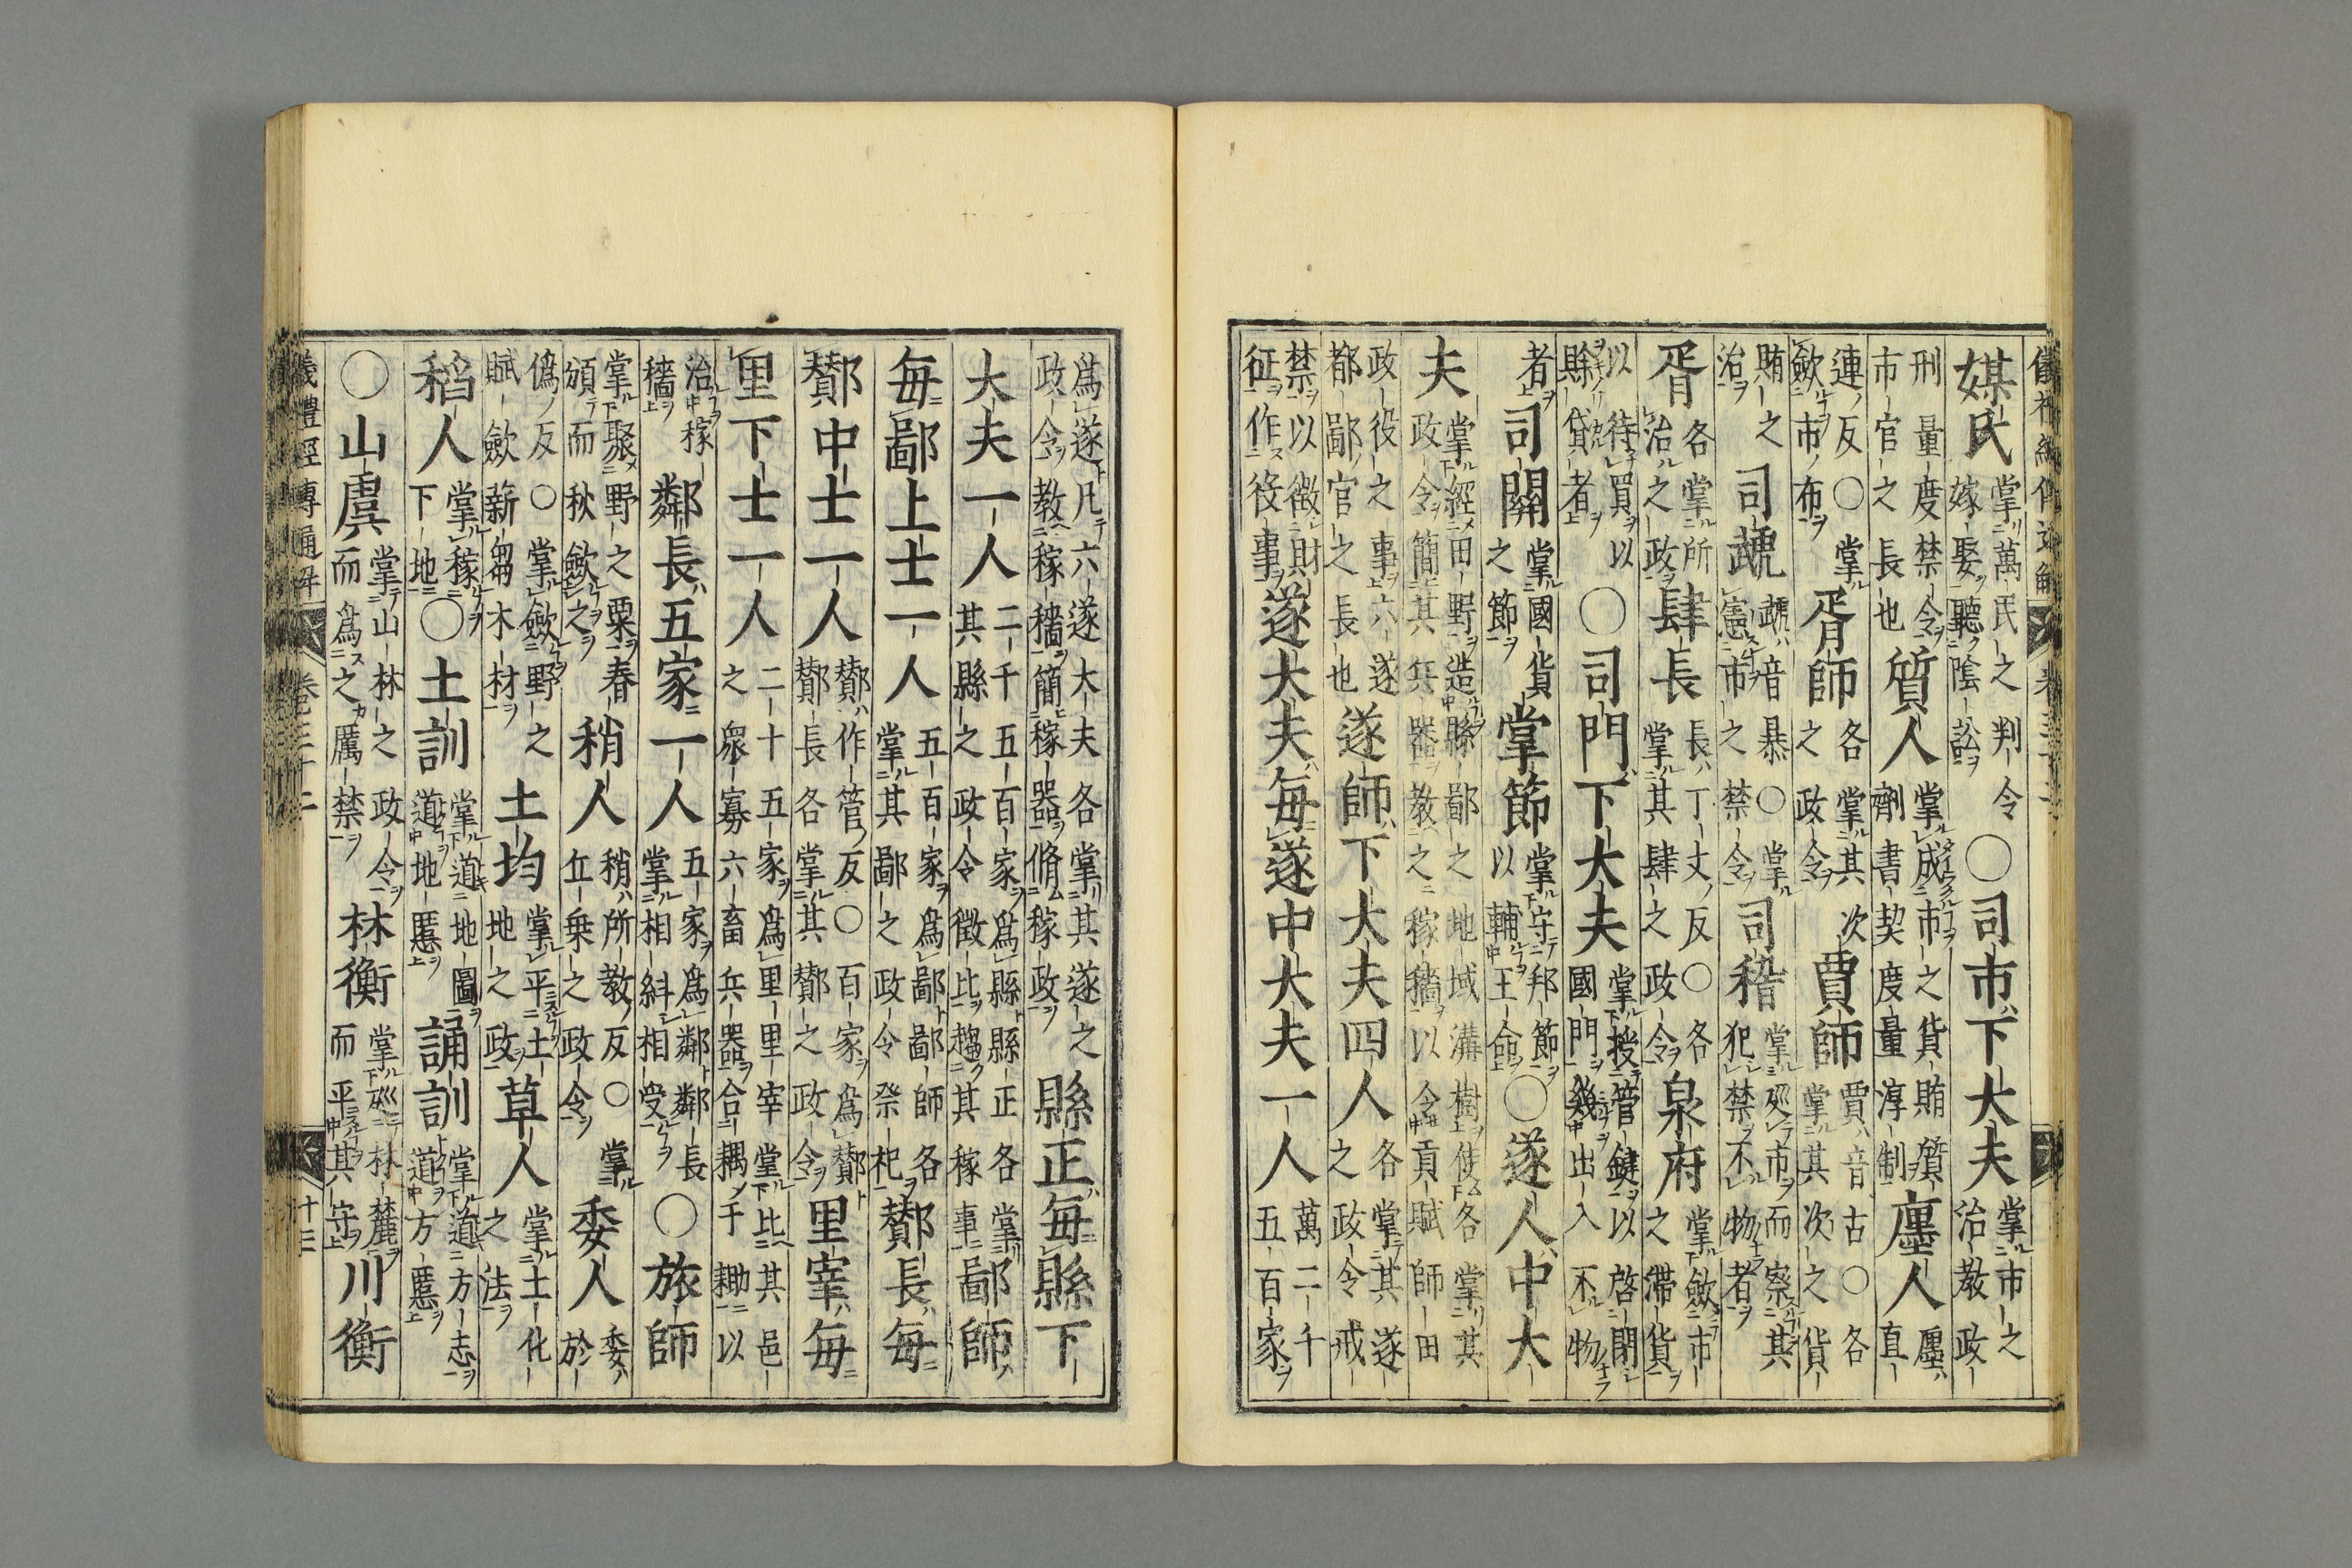 媒氏掌萬民之判令嫁娶聽陰訟○司市下大夫掌市之治教政
刑量度禁令市官之長也質人掌成市之貨賄質劑書契度量淳制廛人廛直
連反○掌歛市布胥師各掌其次之政令賈師賈音古○各掌其次之貨
賄之治司虣虣音暴○掌憲市之禁令司稽掌巡市而察其犯禁不物者
胥各掌所治之政肆長長丁丈反○各掌其肆之政令泉府掌歛市之滯貨
以待買以賖貸者○司門下大夫掌授管鍵以啓閉國門幾出入不物
者司關掌國貨之節掌節掌守邦節以輔王命○遂人中大
夫掌經田野造縣鄙之地域溝樹使各掌其政令簡其兵器教之稼穡以令貢賦師田
政役之事六遂都鄙官之長也遂師下大夫四人各掌其遂之政令戒
禁以徵財征作役事遂大夫每遂中大夫一人萬二千五百家
爲遂凡六遂大夫各掌其遂之政令教稼穡簡稼器脩稼政縣正每縣下
大夫一人二千五百家爲縣縣正各掌其縣之政令徵比趨其稼事鄙師
每鄙上士一人五百家爲鄙鄙師各掌其鄙之政令祭祀酇長每
酇中士一人酇作管反○百家爲酇酇長各掌其酇之政令里宰每
里下士一人二十五家爲里里宰掌比其邑之衆寡六畜兵器合耦于耡以
治稼穡鄰長五家一人五家爲鄰鄰長掌相糾相受○旅師
掌聚野之粟春頒而秋歛之稍人稍所教反○掌丘乗之政令委人委於
僞反○掌歛野之賦歛薪芻木材土均掌平土地之政草人掌土化之法
稻人掌稼下地○土訓掌道地圖道地慝誦訓掌道方志道方慝
○山虞掌山林之政令而爲之厲禁林衡掌巡林麓而平其守川衡
儀禮經傳通解 卷三十二 十三